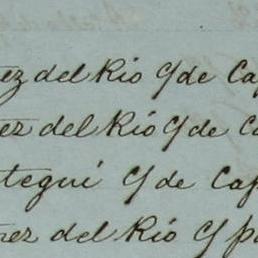 ez del Rio y de Cap
ez del Rio y de Ca
tegui y de Cap
rez del Rio y pa